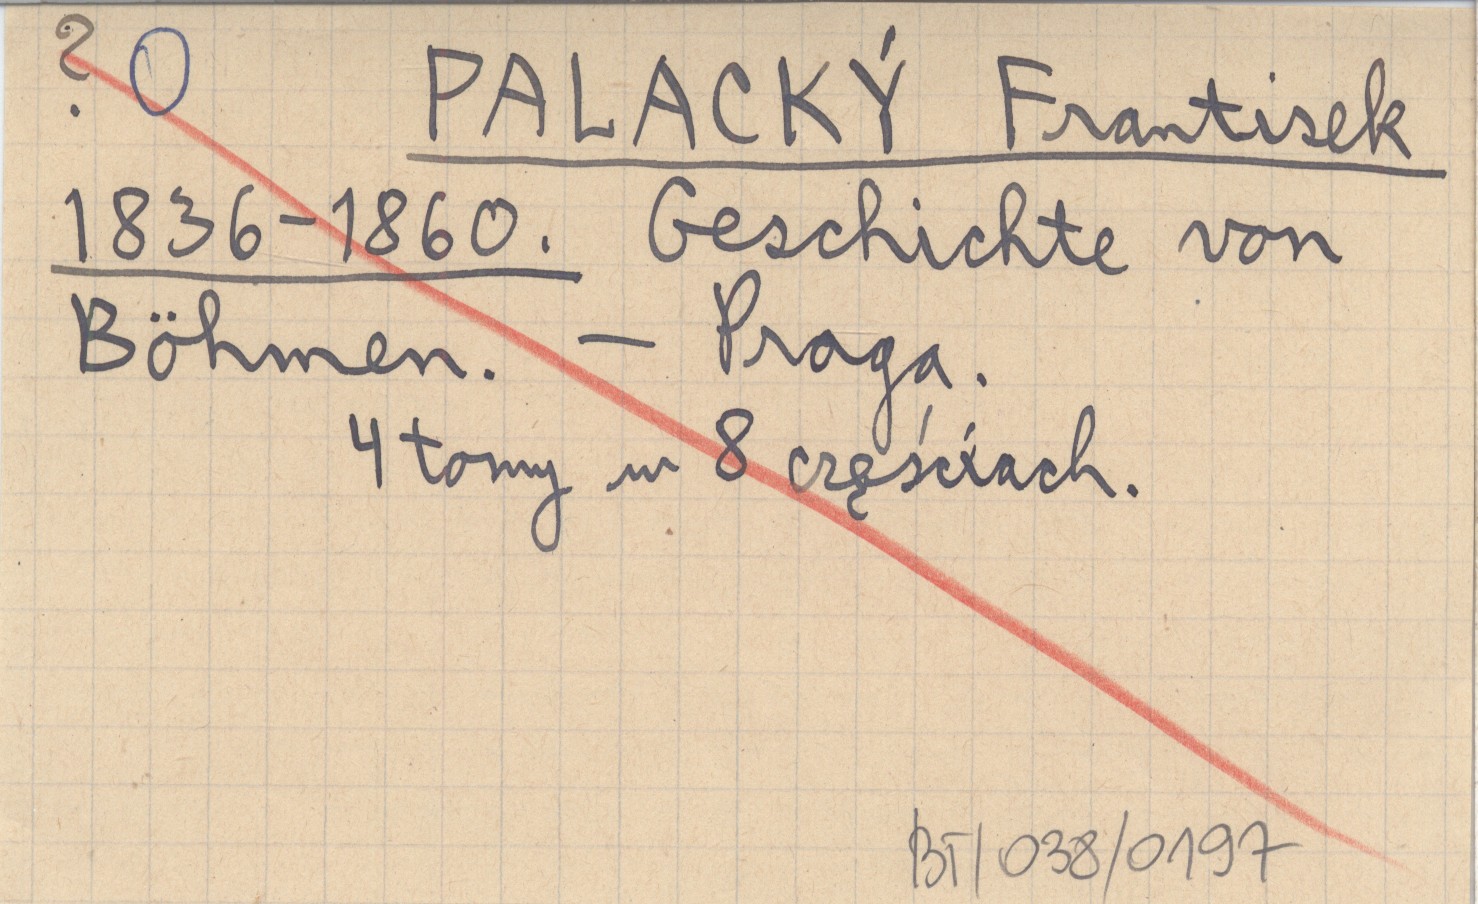 ? O PALACKÝ Frantisek
1836-1860. Geschichte von
Böhmen. — Praga.
4 tomy w 8 częściach.
BT/038/0197